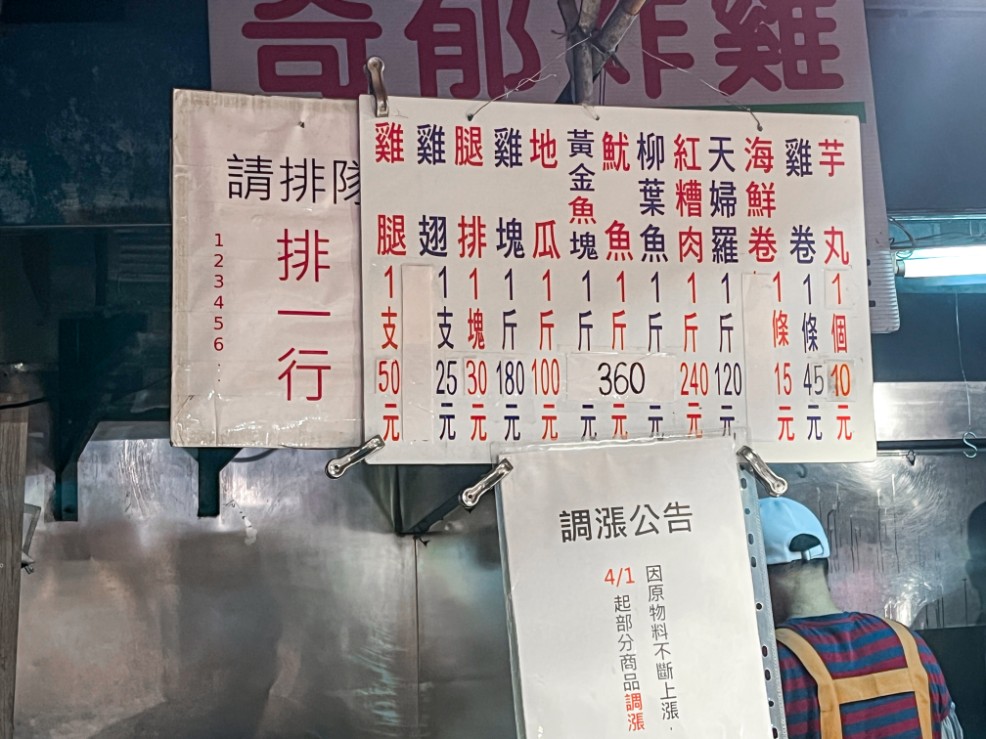 奇郁炸雞
請排隊
排一行
123456..
雞腿1支50元
雞翅1支25元
腿排1塊30元
雞塊1斤180元
地瓜1斤100元
黃金魚塊1斤360元
魷魚1斤360元
柳葉魚1斤元
紅糟肉1斤240元
天婦羅1斤120元
海鮮卷1條15元
雞卷1條45元
芋丸1個10元
調漲公告
因原物料不斷上漲,
4/1起部分商品調漲